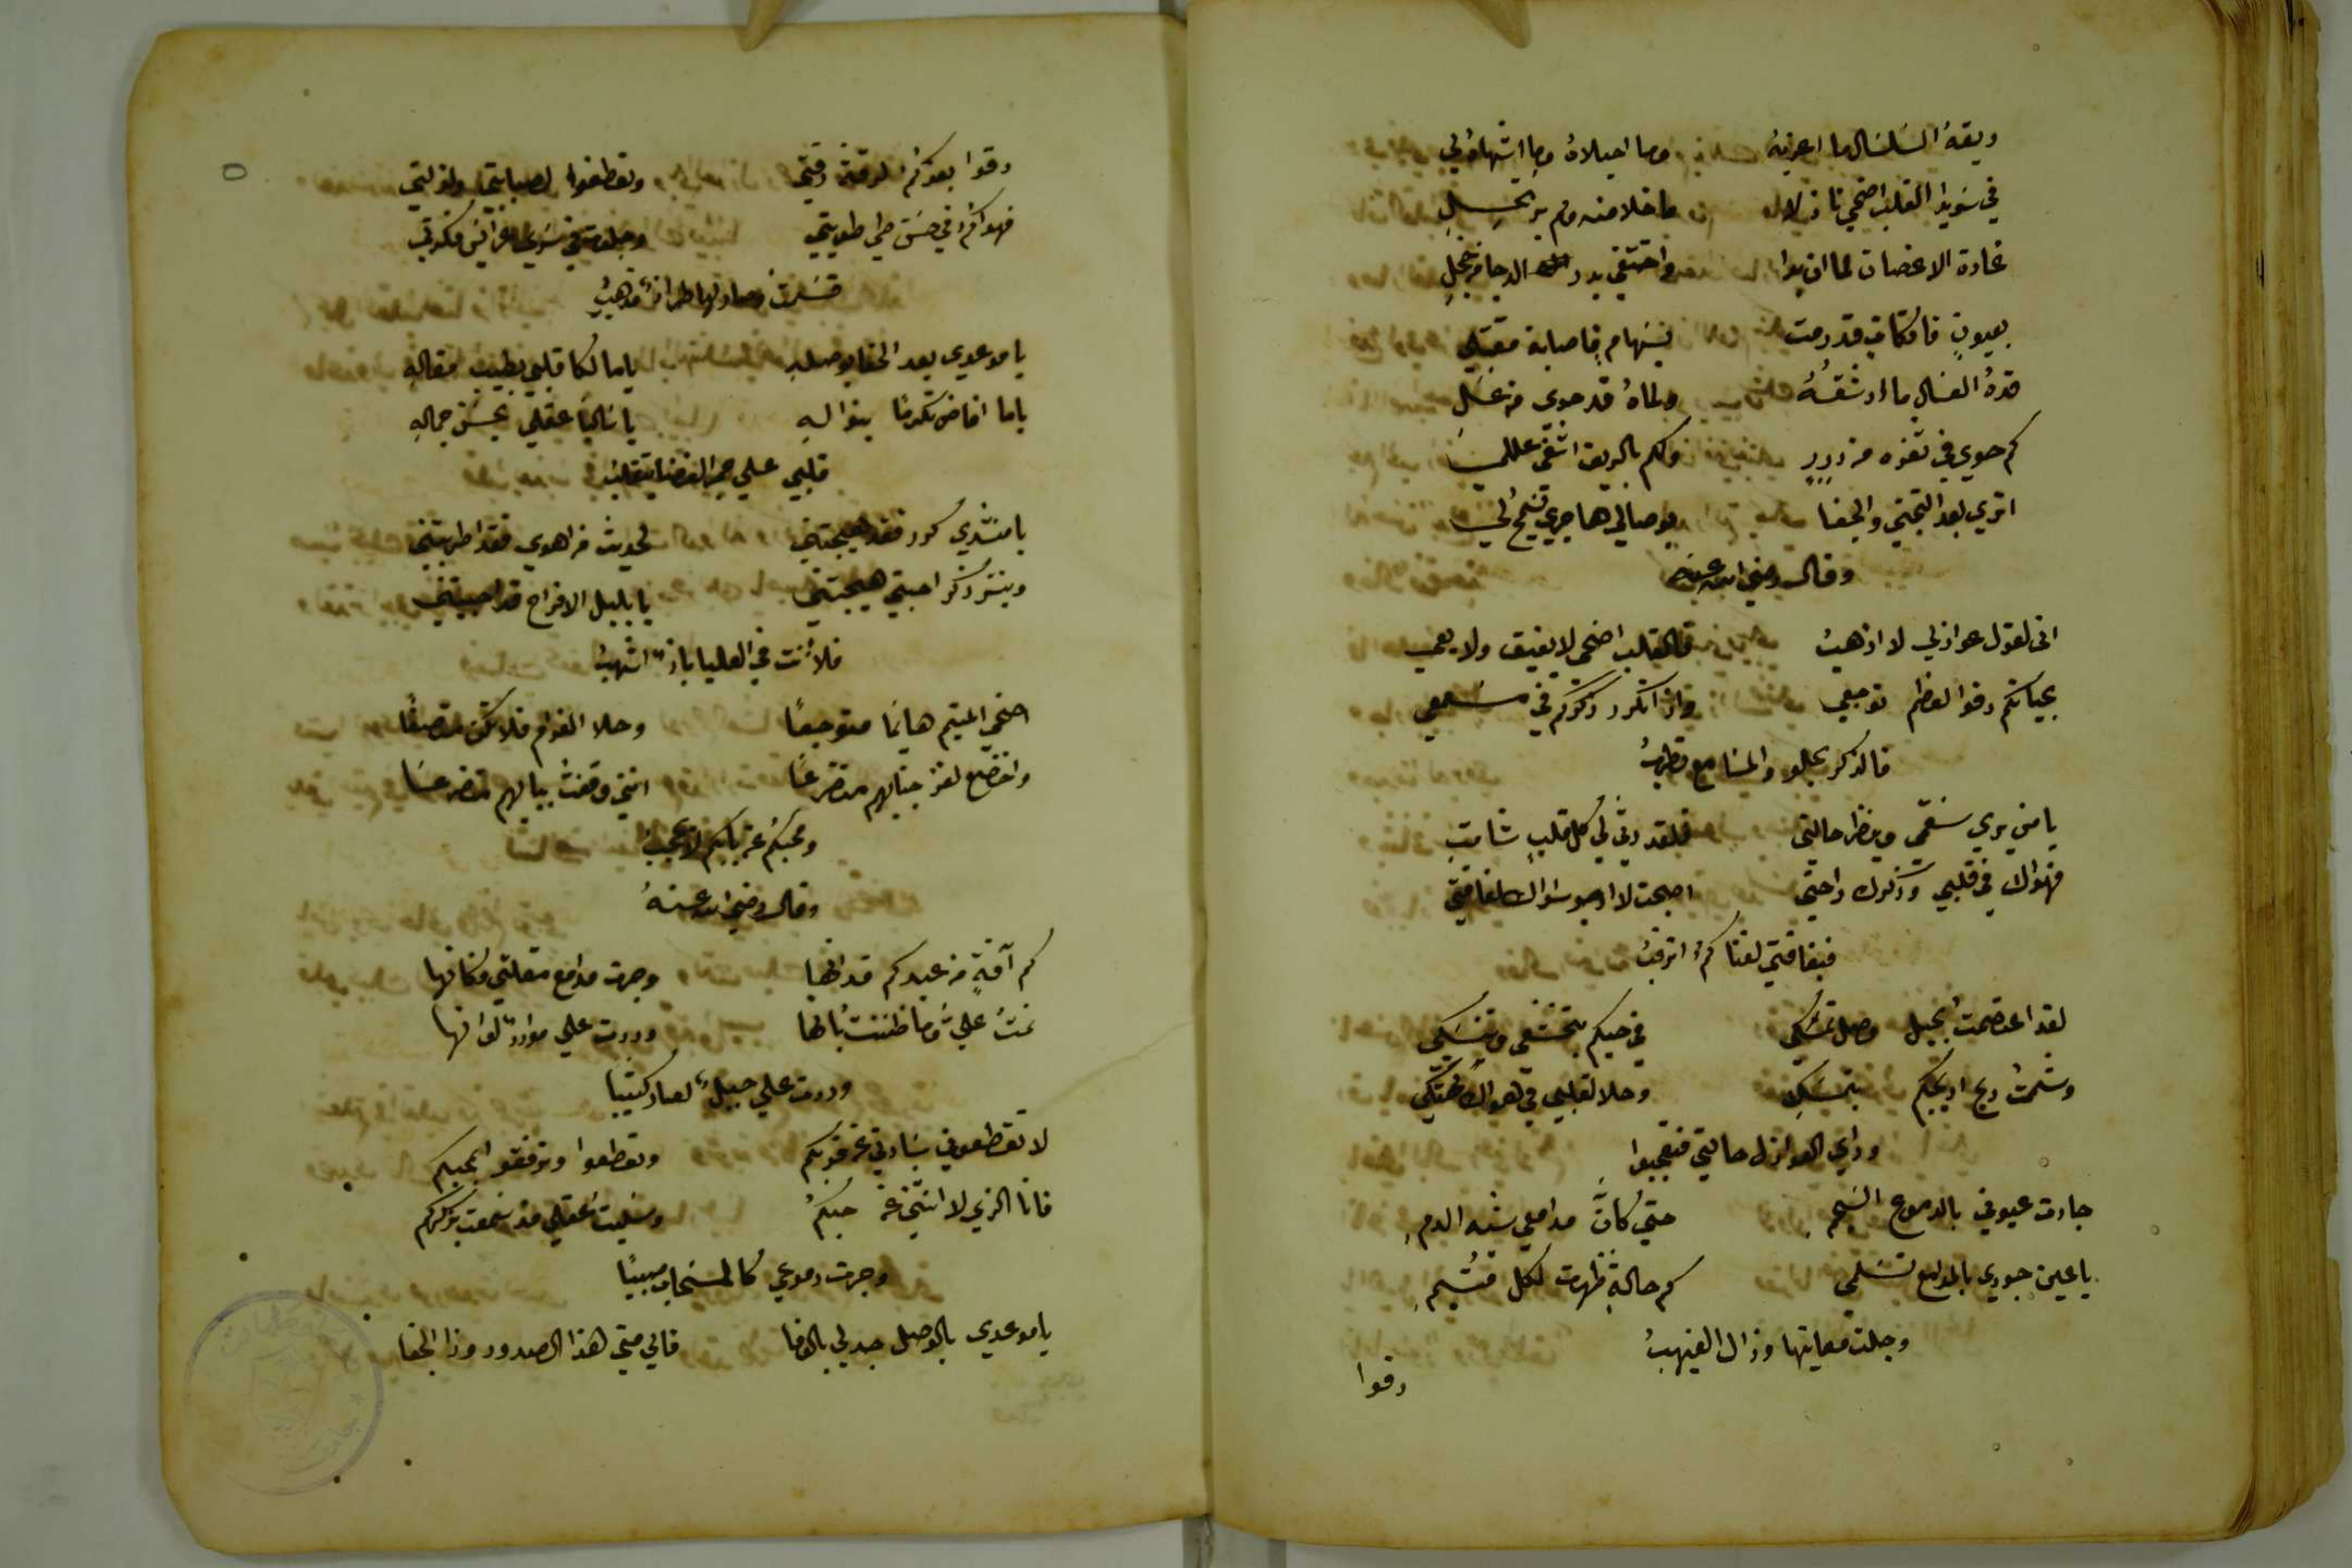 ريقهُ السَلسَال ما اعذبهُ وما احيلاهُ وما اشهاهُ لي
في سَويدا القلب اضحي نازلا ما خلامنه ولم يرتحِلِ
غادة الاغصان لما ان بدا واختفي بدر الدجا من خجلِ
بعيونٍ فاتكاتٍ قد رمت بسهامٍ فاصابة مقتلي
قدهُ العسَال ما ارشقهُ ولماهُ قد حوى من عسَلِ
كم حوي في ثغره من دررٍ ولكم بالريق اشفي عللي
اتري بعد التجني والجفا بوصالي هاجري يسمح لي
وقال رضي الله عنه
اني لقول عواذلي لا اذهبُ فالقلب اضحي لا يفيق ولا يعي
بحياتكم رقوا لعظم توجعي واذا تكرر ذكركم في مسمعي
فالذكر يحلو والمسَامع تطربُ
يا من يري سقمي وينظر حالتي فلقد رثي لي كل قلبٍ شامتِ
فهواك في قلبي وذكرك راحتي اصبحت لا ارجو سواك لفاقتي
فبفاقتي لغناكمُ اترقبُ
لقد اعتصمت بحبل وصل تمسّكي في حبكم بتخشعي وتنسّكي
وشممت ريح اريجكم بتمسّكِ وحلا لقلبي في هواك تهتكي
وراي العواذل حالتي فتعجبوا
جادت عيوني بالدموع السجمِ حتي كانَّ مدامعي شبه الدمِ
يا عين جودي بالمدامع تسلمي كم حالةٍ ظهرت لكل متيمِ
وجلت معاينها وزال الغيهبُ
رقوا
رقوا بعزكم لرقة رقتي وتعطفوا لصبابتي ولذلتي
فهواكمُ في حسَن طي طويتي وجلوتمُ عرائس فكرتي
قسَمت وصار لها طراز مذهبُ
يا موعدي بعد الجفا بوصلهِ ياما لكا قلبي بطيب مقالهِ
ياما افاض تكرمًا بنوالهِ يا سَالبًا عقلي بحسَن جمالهِ
قلبي علي جمر الغضا يتقلبُ
يا منشدي كرر فقد هيجتني لحديث من اهوي فقد اطربتني
وبنشر ذكر احبتي هيجتني يا بلبل الافراح قد احييتني
فلأنت في العليا بازٌ اشهبُ
اضحي المتيم هايمًا متوجعًا وحلا الغرام فلا تكن متصنعًا
واخضع لعز جنابهم متضرعًا انني وقفت ببابهم متضرعًا
ومحبكم عن بابكم لا يحجبُ
وقال رضي الله عنهُ
كم آفةٍ من عبدكم قد انحا وجرت مدامع مقلتي وكانها
نمتُ عليَّ وما ظننت بانها وردت علي موارد لو انها
وردت علي جبيلٍ لصار كثيبًا
لا تقطعوني سَادتي عن قربكم وتعطفوا وترفقوا بمحبكم
فانا الذي لا انثني عن حبكمُ وسَلبت عقلي مذ سَمعت بذكركم
وجرت دموعي كالسَحاب صبيبًا
يا موعدي بالوصل جد لي بالوفا فالي متي هذا الصدود وذا الجفا